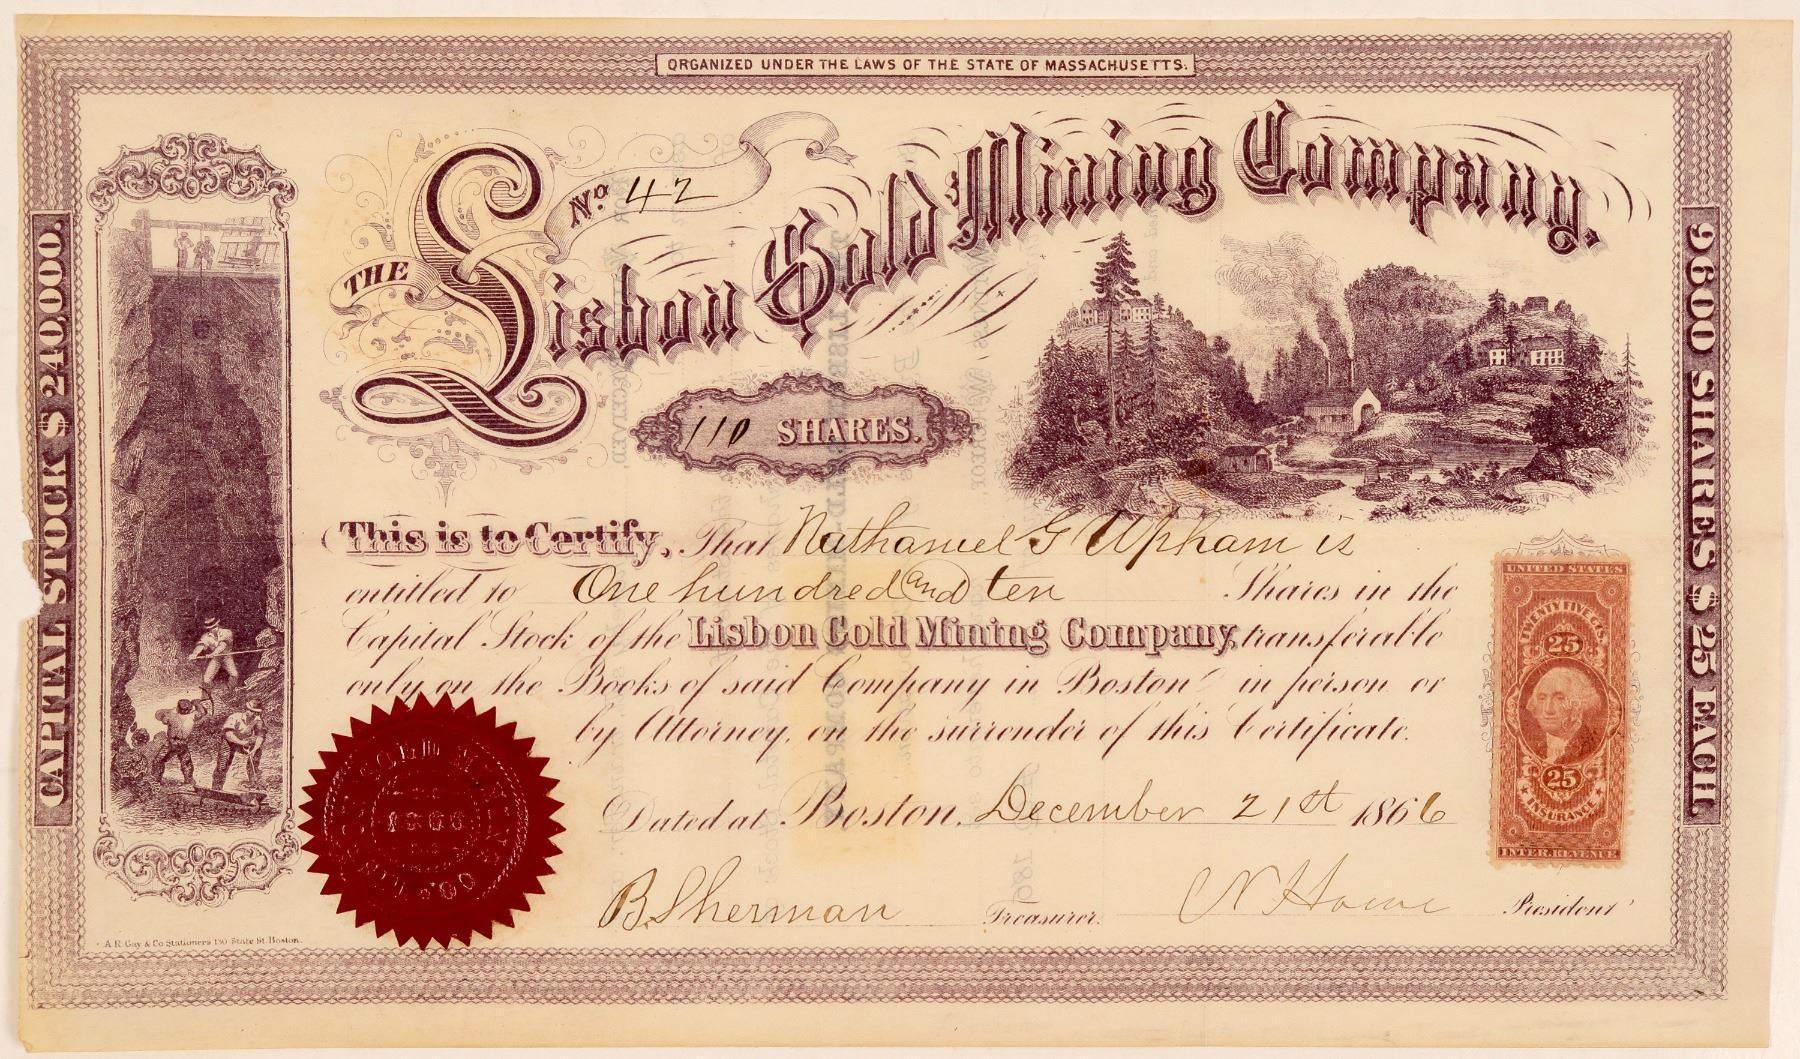 ORGANIZED UNDER THE LAWS OF THE STATE OF MASSACHUSETTS.
CAPITAL STOCK $240,000.
No. 42
THE Lisbon Gold Mining Company.
110 SHARES.
This is to Certify, That Nathaniel G Upham is
entitled to One hundred and ten Shares in the
Capital Stock of the Lisbon Gold Mining Company, transferable
only on the Books of said Company in Boston in person or
by Attorney, on the surrender of this Certificate.
Dated at Boston, December 21st 1866
B. Sherman Treasurer. N Howe President
A. R. Gay & Co Stationers 130 State St. Boston.
9600 SHARES $25 EACH.
UNITED STATES
TWENTY FIVE CTS.
25
25
INSURANCE
INTER. REVENUE
GOLD MINING CO.
1866